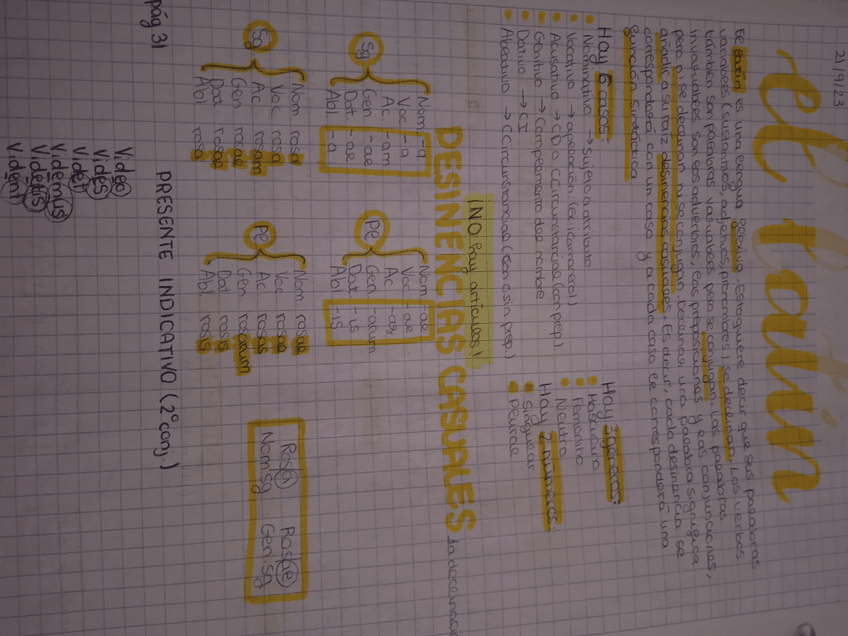 21/9/23
el latín
El latín es una lengua flexiva. Esto quiere decir que sus palabras
variables (sustantivos, adjetivos, pronombres) se declinan. Los verbos
también son palabras variables pero se conjugan. Las palabras
invariables son los adverbios, las preposiciones y las conjunciones,
pero ni se declinan ni se conjugan. Declinar una palabra significa
añadir a su raíz desinencias casuales. Es decir, cada desinencia se
corresponderá con un caso y a cada caso le corresponderá una
función sintáctica
Hay 6 casos:
Nominativo → Sujeto o atributo
Vocativo → apelación
Acusativo → CD o CCircunstancial (con prep)
Genitivo → Complemento del nombre
Dativo → CI
Ablativo → CCircunstancial (con o sin prep.)
Hay 3 géneros:
Masculino
Femenino
Neutro
Hay 2 números
Singular
Plural
¡NO hay artículos!
DESINENCIAS CASUALES
Sg
Nom -a
Voc -a
Ac. -am
Gen -ae
Dat. -ae
Abl. -a
Pl
Nom -ae
Voc -ae
Ac -as
Gen -arum
Dat. -is
Abl -is
Sg
Nom rosa
Voc rosa
Ac rosam
Gen rosae
Dat rosae
Abl rosa
Pl
Nom rosae
Voc rosae
Ac rosas
Gen rosarum
Dat rosis
Abl rosis
Rosa Rosae
Nom sg Gen sg
PRESENTE INDICATIVO (2ª conj.)
pág 31
Video
Vides
Videt
Videmus
Videtis
Vident